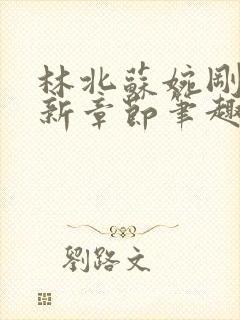 林北蘇婉剛
新章節筆趣
劉路文